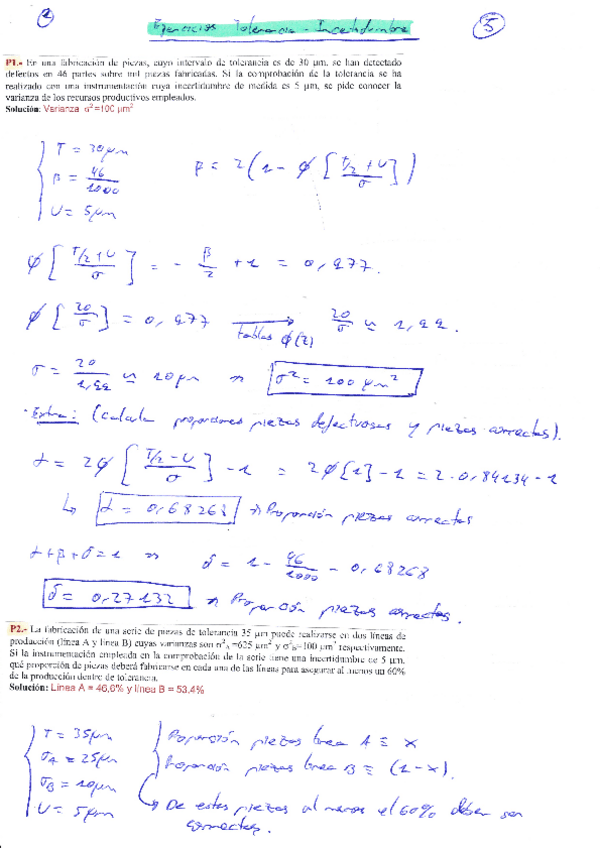 2
Ejercicios Tolerancia - Incertidumbre
5
P1.- En una fabricación de piezas, cuyo intervalo de tolerancia es de 30 µm, se han detectado
defectos en 46 partes sobre mil piezas fabricadas. Si la comprobación de la tolerancia se ha
realizado con una instrumentación cuya incertidumbre de medida es 5 µm, se pide conocer la
varianza de los recursos productivos empleados.
Solución: Varianza σ²=100 µm²
T = 30µm
β = 46/1000
U = 5µm
β = 2(1 - φ[(T/2 + U)/σ])
φ[(T/2 + U)/σ] = - β/2 + 1 = 0,977.
φ[20/σ] = 0,977 → tablas φ(z) 20/σ ≃ 1,99.
σ = 20/1,99 ≃ 10µm ⇒ σ² = 100 µm²
· Extra: (calcula proporciones piezas defectuosas y piezas correctas).
α = 2φ[(T/2 - U)/σ] - 1 = 2φ[1] - 1 = 2·0,84134 - 1
↳ α = 0,68268 ⇒ Proporción piezas correctas
α + β + δ = 1 ⇒ δ = 1 - 46/1000 - 0,68268
δ = 0,27132 ⇒ Proporción piezas correctas.
P2.- La fabricación de una serie de piezas de tolerancia 35 µm puede realizarse en dos líneas de
producción (línea A y línea B) cuyas varianzas son σ²A =625 µm² y σ²B=100 µm² respectivamente.
Si la instrumentación empleada en la comprobación de la serie tiene una incertidumbre de 5 µm,
qué proporción de piezas deberá fabricarse en cada una de las líneas para asegurar al menos un 60%
de la producción dentro de tolerancia.
Solución: Línea A = 46,6% y línea B = 53,4%
T = 35µm
σA = 25µm
σB = 10µm
U = 5µm
Proporción piezas línea A ≡ x
Proporción piezas línea B ≡ (1-x).
↳ De estas piezas al menos el 60% deben ser
correctas.